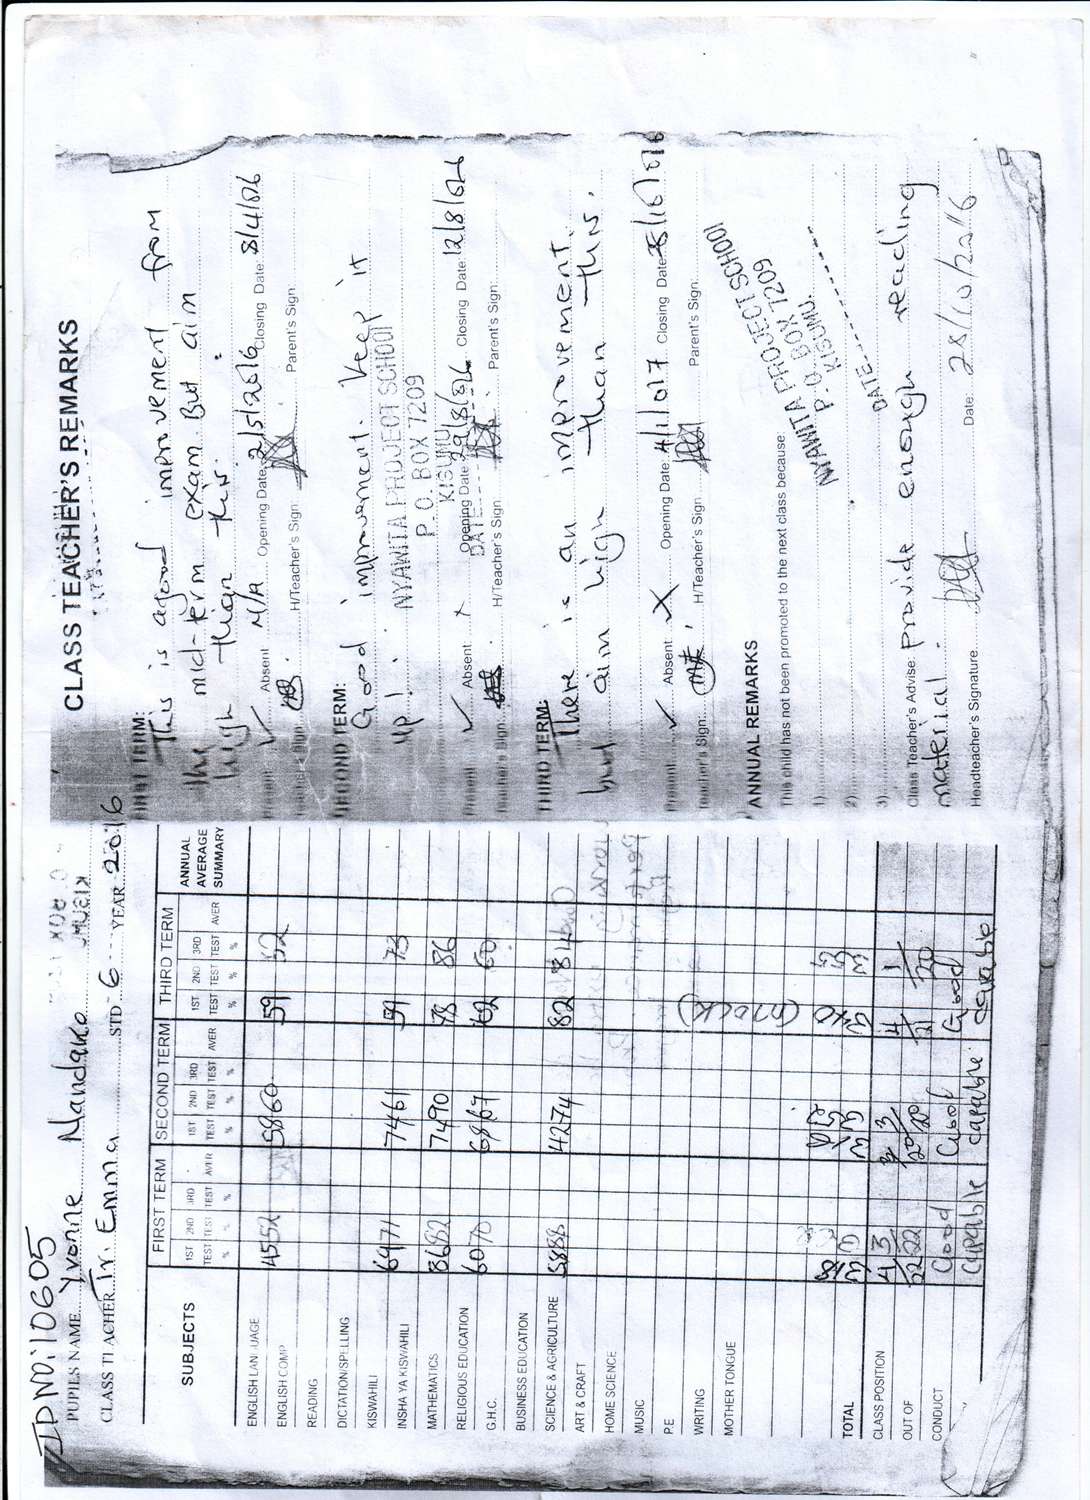 IDNO: 10605
PUPILS NAME Yvonne Nandako
CLASS TEACHER Tr. Emma STD 6 YEAR 2016
SUBJECTS FIRST TERM SECOND TERM THIRD TERM ANNUAL AVERAGE SUMMARY
1ST TEST % 2ND TEST % 3RD TEST % AVER 1ST TEST % 2ND TEST % 3RD TEST % AVER 1ST TEST % 2ND TEST % 3RD TEST % AVER
ENGLISH LANGUAGE 45 52 58 60 59 52
ENGLISH COMP
READING
DICTATION/SPELLING
KISWAHILI
INSHA YA KISWAHILI 64 71 74 61 59 73
MATHEMATICS 86 82 74 90 78 86
RELIGIOUS EDUCATION 60 70 68 67 62 60
G.H.C.
BUSINESS EDUCATION
SCIENCE & AGRICULTURE 58 88 42 74 82 84
ART & CRAFT
HOME SCIENCE
MUSIC
P.E
WRITING (MOCK)
MOTHER TONGUE
TOTAL 313 340
CLASS POSITION 4 3 3 3 4 1
OUT OF 22 22 20 20 21 20
CONDUCT Good Good Good
capable capable capable
CLASS TEACHER'S REMARKS
FIRST TERM:
This is a good improvement from
the mid-term exam. But aim
high than this.
Present ✓ Absent N/A Opening Date: 2/5/2016 Closing Date: 8/4/016
Teacher's Sign H/Teacher's Sign Parent's Sign
SECOND TERM:
Good improvement. Keep it
up!
NYAWITA PROJECT SCHOOL
P. O. BOX 7209
KISUMU
DATE
Present ✓ Absent x Opening Date 29/8/016 Closing Date 12/8/016
Teacher's Sign H/Teacher's Sign Parent's Sign
THIRD TERM:
There is an improvement.
but aim high than this.
Present ✓ Absent X Opening Date: 4/1/017 Closing Date 28/10/016
Teacher's Sign: H/Teacher's Sign Parent's Sign
ANNUAL REMARKS
This child has not been promoted to the next class because:
1)
2)
3)
NYAWITA PROJECT SCHOOL
P. O. BOX 7209
KISUMU.
DATE
Class Teacher's Advise: Provide enough reading
material.
Headteacher's Signature Date: 28/10/2016